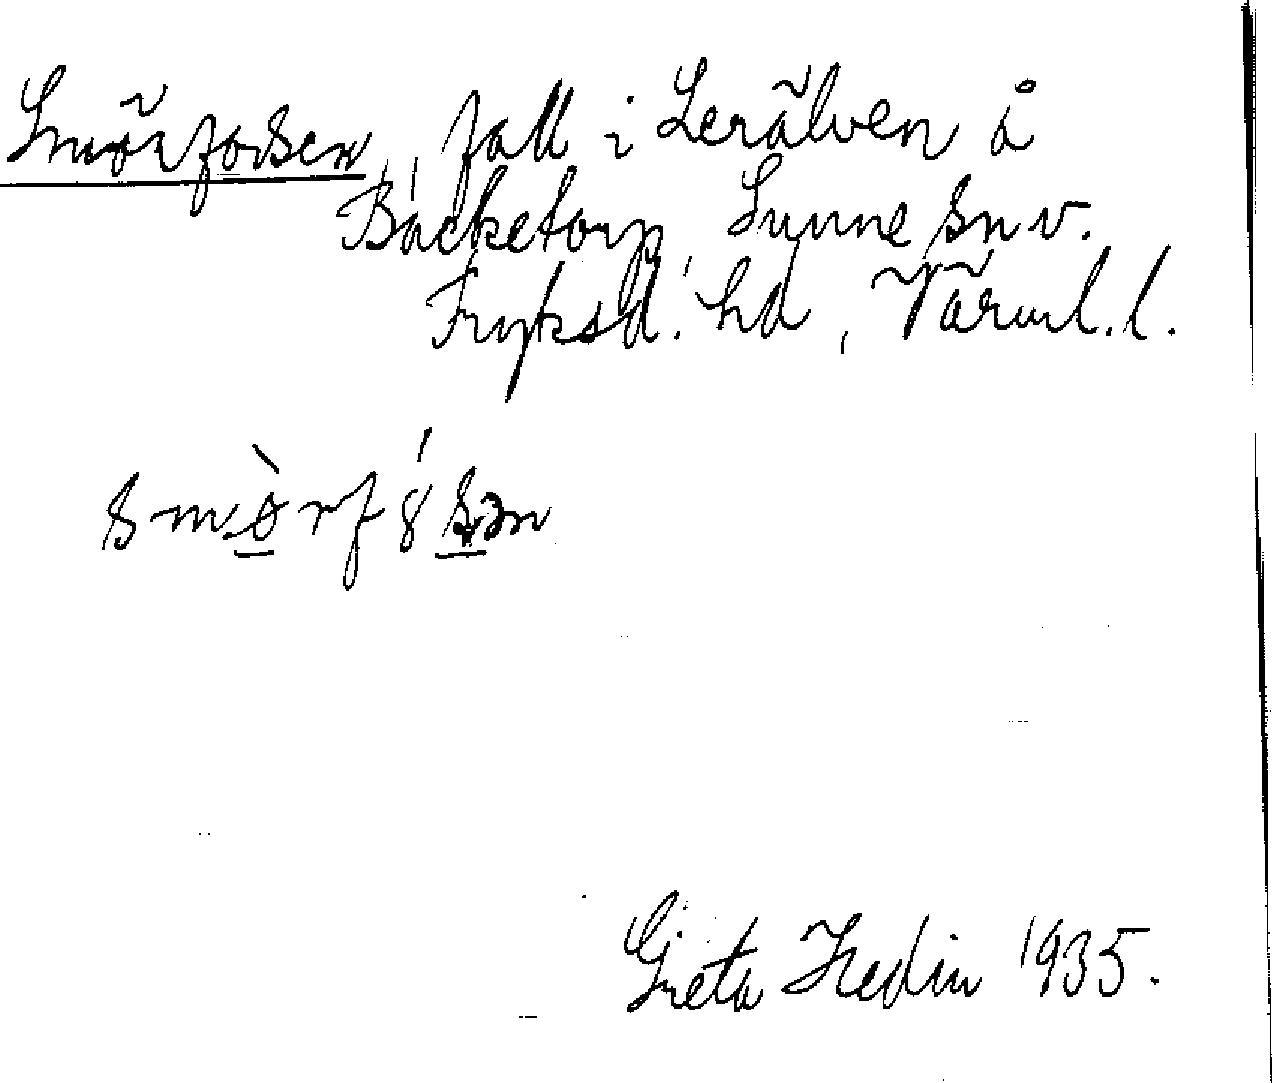 Smörforsen, fall i Lerälven å
Bäcketorp, Sunne sn v.
Fryksd. hd, Värml. l.
Greta Hedin 1935.